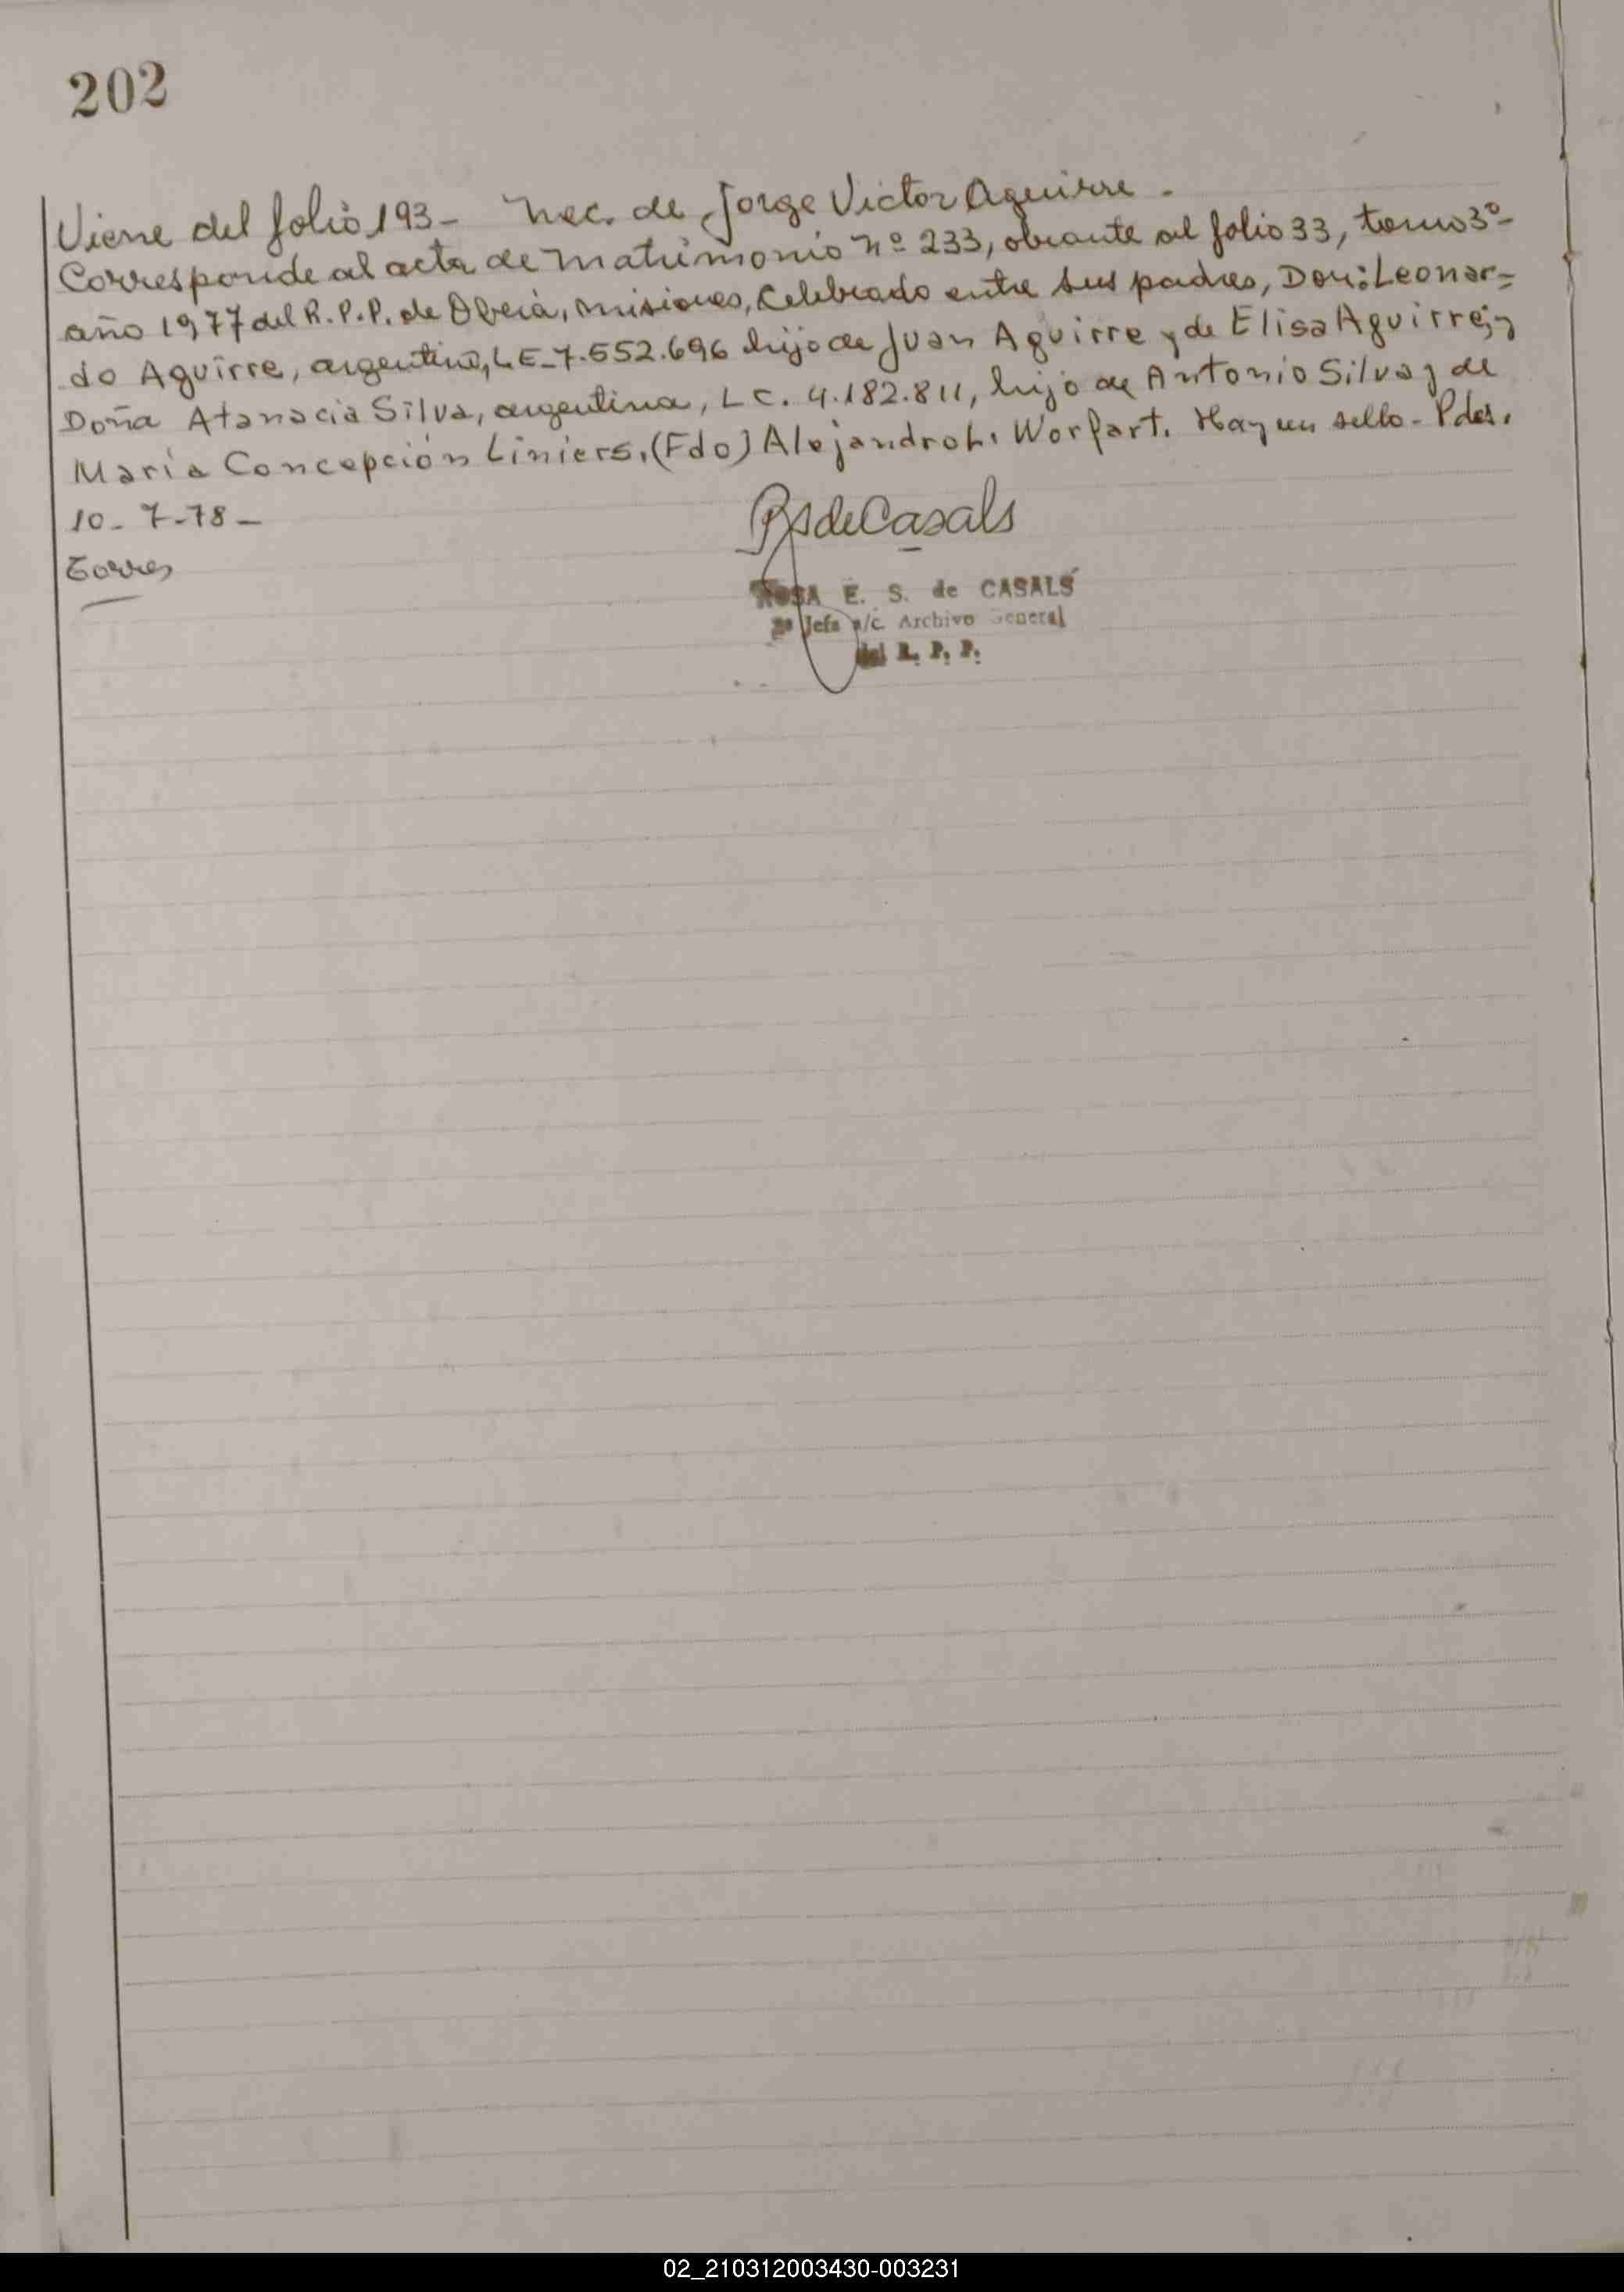 202
Viene del folio 193- Nac. de Jorge Victor Aguirre.-
Corresponde al acta de matrimonio nº 233, obrante al folio 33, tomo 3º-
año 1977 del R.P.P. de Oberá, Misiones, Celebrado entre sus padres, Don: Leonar=
do Aguirre, argentino, L E-7.552.696 hijo de Juan Aguirre y de Elisa Aguirre; y
Doña Atanacia Silva, argentina, L C. 4.182.811, hijo de Antonio Silva y de
María Concepción Liniers. (Fdo) Alejandro L. Worfart. Hay un sello- Pdas.
10-7-78-
Torres
RSdeCasals
ROSA E. S. de CASALS
2ª Jefa a/c. Archivo General
del R. P. P.
02_210312003430-003231